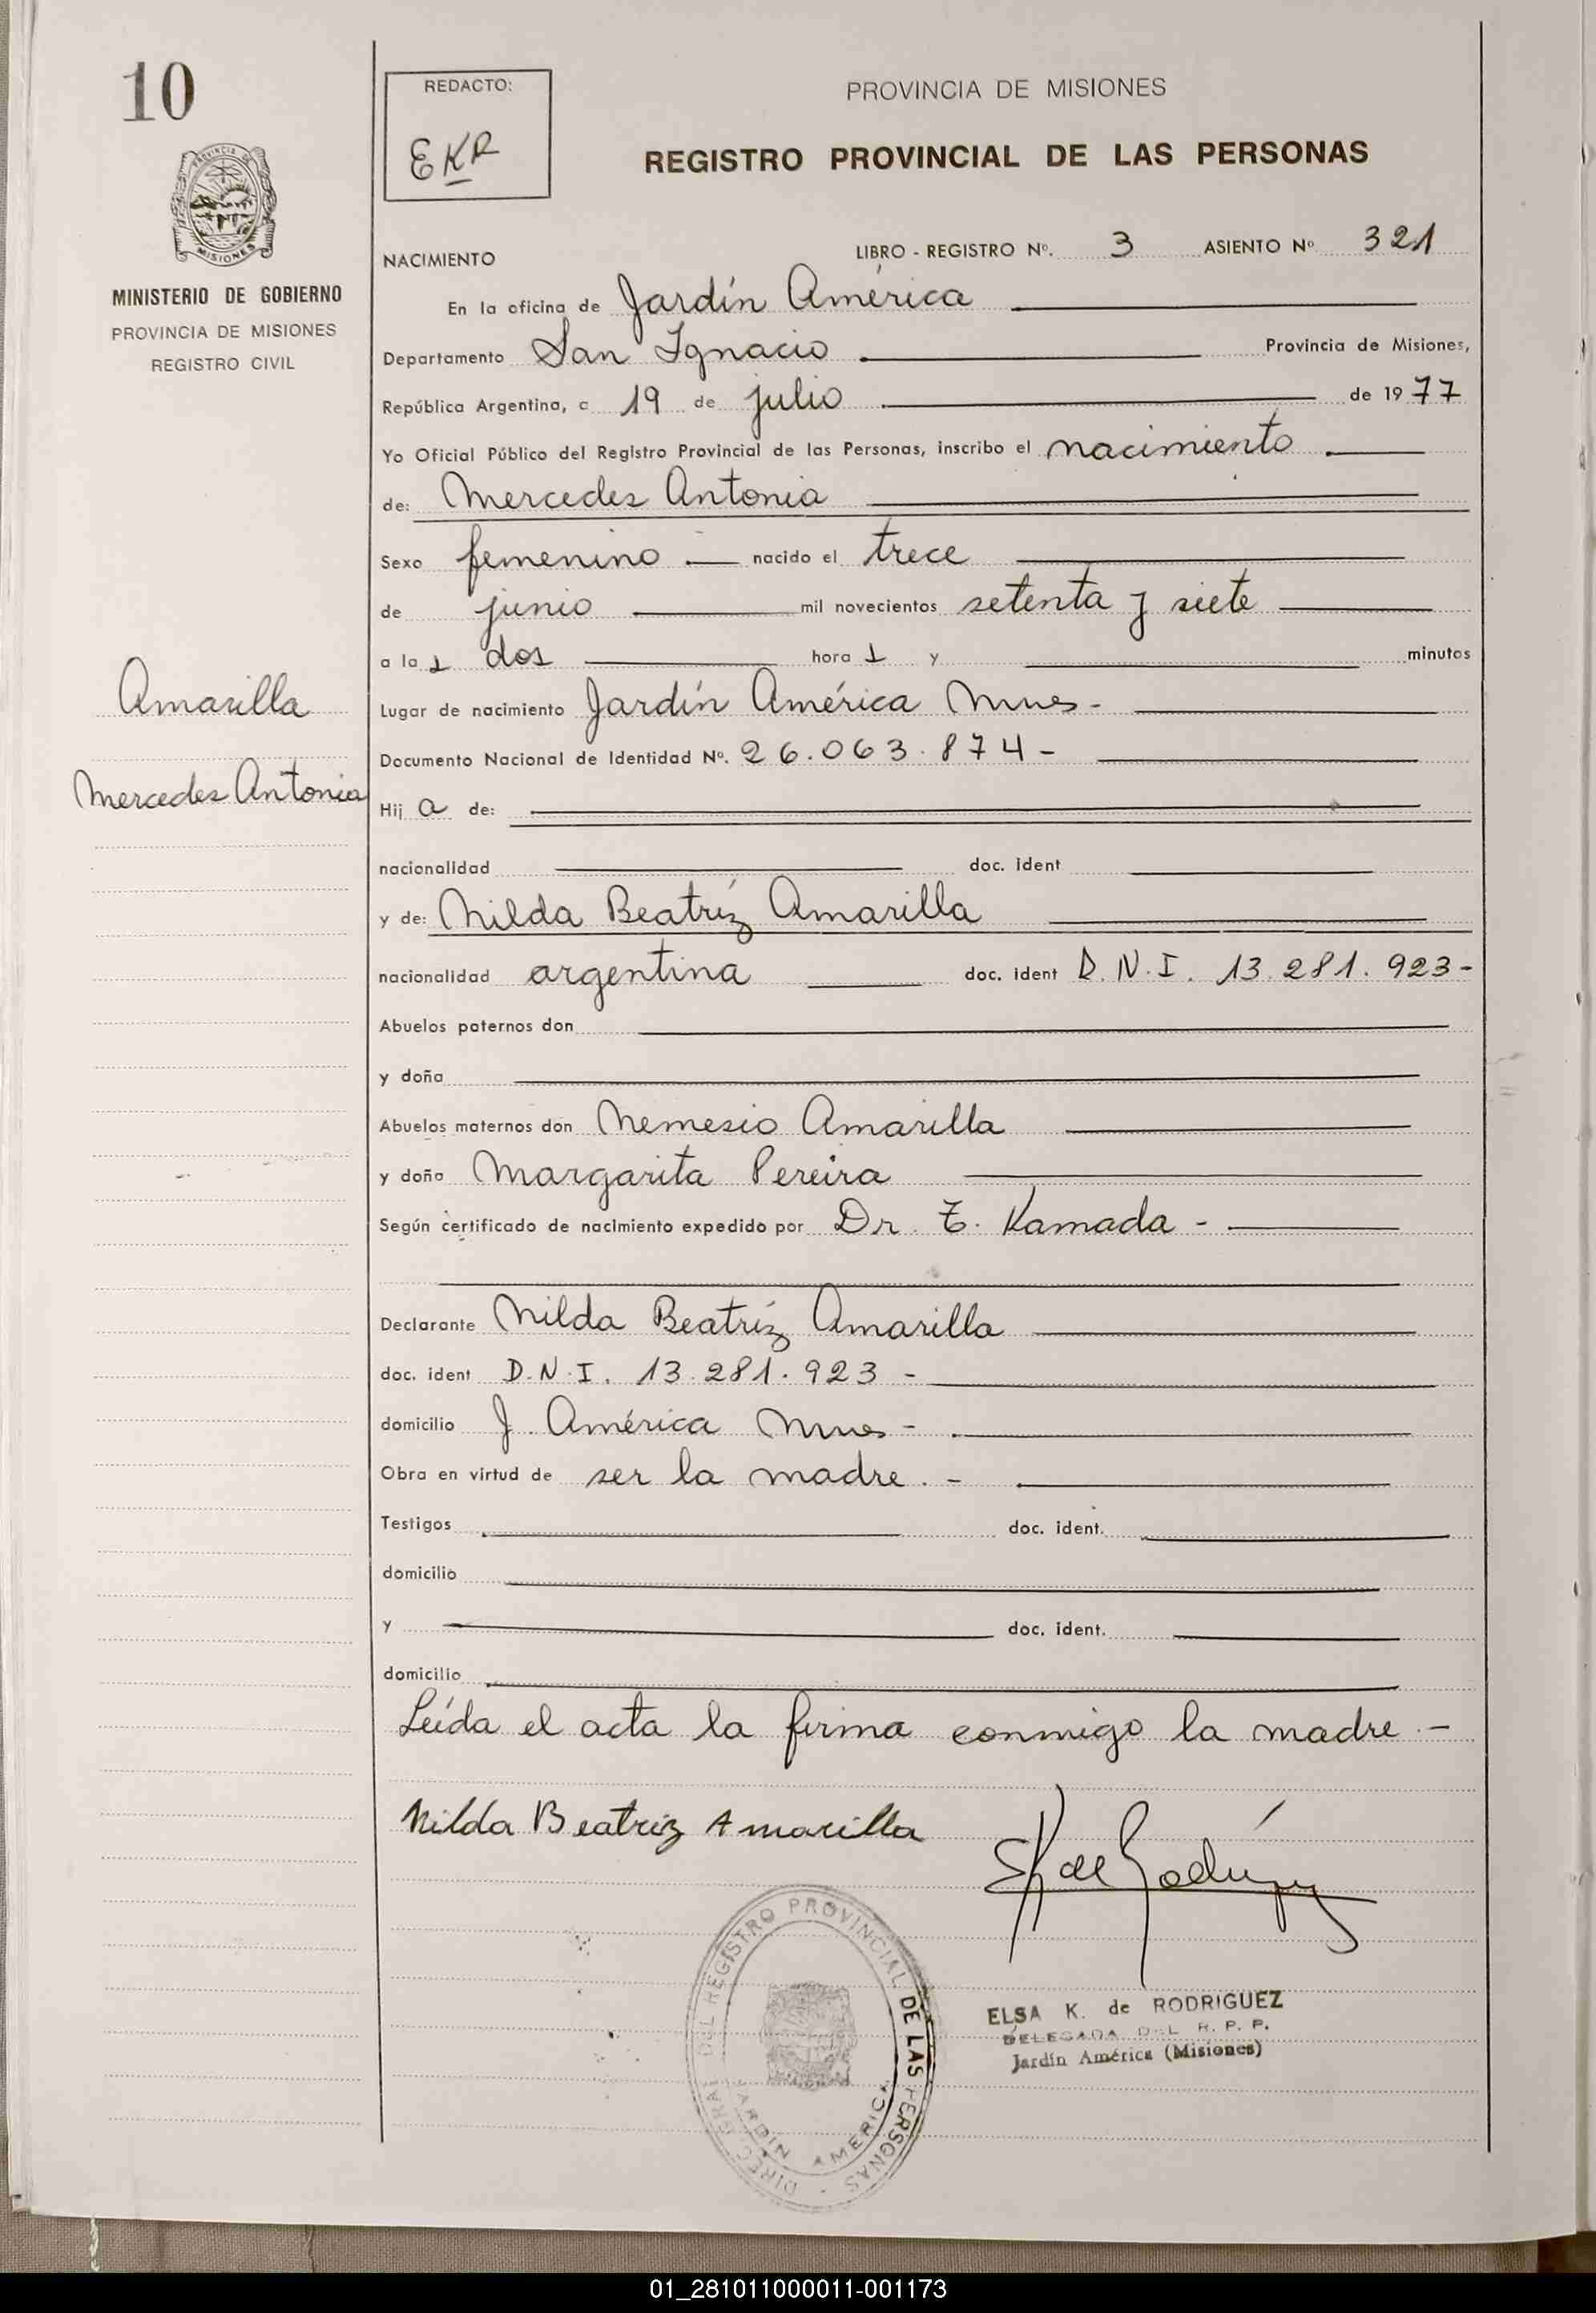 10
PROVINCIA DE
MISIONES
MINISTERIO DE GOBIERNO
PROVINCIA DE MISIONES
REGISTRO CIVIL
Amarilla
Mercedes Antonia
REDACTO:
EKR
PROVINCIA DE MISIONES
REGISTRO PROVINCIAL DE LAS PERSONAS
NACIMIENTO LIBRO - REGISTRO Nº. 3 ASIENTO Nº 321
En la oficina de Jardín América
Departamento San Ignacio Provincia de Misiones,
República Argentina, a 19 de julio de 1977
Yo Oficial Público del Registro Provincial de las Personas, inscribo el nacimiento
de: Mercedes Antonia
Sexo femenino nacido el trece
de junio mil novecientos setenta y siete
a la s dos hora s y minutos
Lugar de nacimiento Jardín América Mnes-
Documento Nacional de Identidad Nº. 26.063.874-
Hij a de:
nacionalidad doc. ident
y de: Nilda Beatríz Amarilla
nacionalidad argentina doc. ident D.N.I. 13.281.923-
Abuelos paternos don
y doña
Abuelos maternos don Nemesio Amarilla
y doña Margarita Pereira
Según certificado de nacimiento expedido por Dr. T. Kamada -
Declarante Nilda Beatríz Amarilla
doc. ident D.N.I. 13.281.923 -
domicilio J. América Mnes-
Obra en virtud de ser la madre.-
Testigos doc. ident.
domicilio
y doc. ident.
domicilio
Leída el acta la firma conmigo la madre.-
Nilda Beatriz Amarilla
EK de Rodríguez
DIREC. GRAL. DEL REGISTRO PROVINCIAL DE LAS PERSONAS
JARDIN AMERICA
ELSA K. de RODRIGUEZ
DELEGADA DEL R. P. P.
Jardín América (Misiones)
01_281011000011-001173